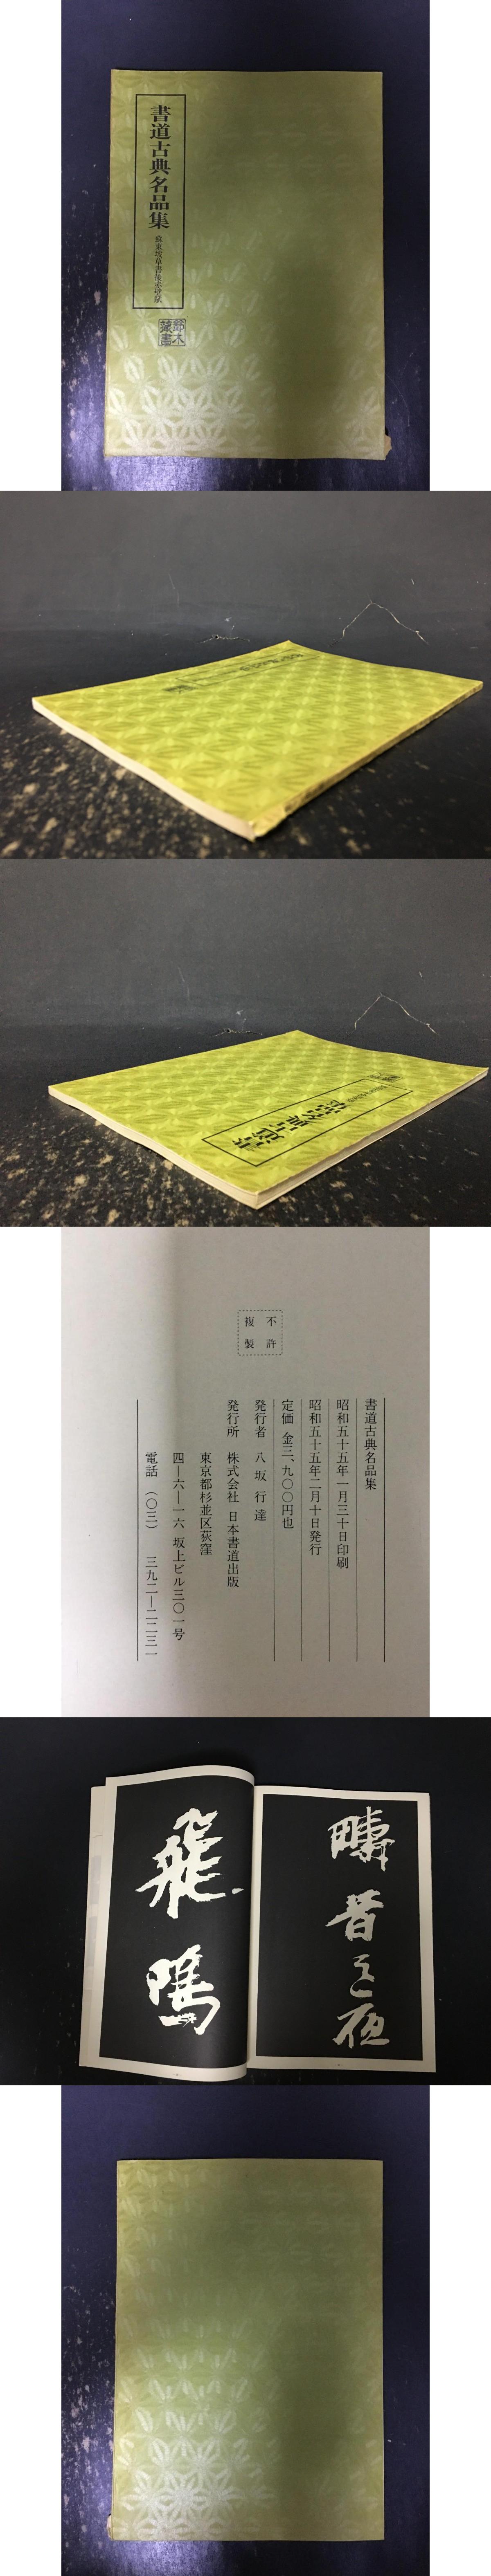 書道古典名品集
蘇東坡草書後赤壁賦
鈴木
蔵書
不許
複製
書道古典名品集
昭和五十五年一月三十日印刷
昭和五十五年二月十日発行
定価 金三、九〇〇円也
発行者 八坂行達
発行所 株式会社 日本書道出版
東京都杉並区荻窪
四―六―一六 坂上ビル三〇一号
電話 (〇三) 三九二―二二三一
疇昔之夜
飛鳴